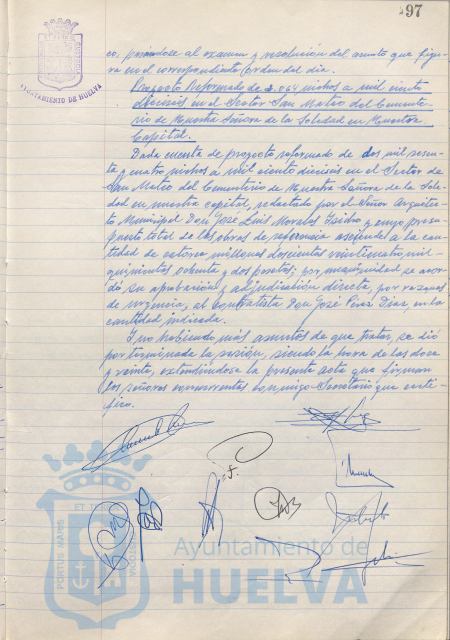 97
AYUNTAMIENTO DE HUELVA
co, pasándose al examen y resolución del asunto que figu-
ra en el correspondiente orden del día.
Proyecto Reformado de 2.064 nichos a mil ciento
dieciseis en el Sector San Mateo del Cemente-
rio de Nuestra Señora de la Soledad en Nuestra
Capital.
Dada cuenta de proyecto reformado de dos mil sesen-
ta y cuatro nichos a mil ciento dieciseis en el Sector de
San Mateo del Cementerio de Nuestra Señora de la Sole-
dad en nuestra capital, redactado por el Señor Arquitec-
to Municipal Don José Luis Morales y cuyo presu-
puesto total de las obras de referencia asciende a la can-
tidad de catorce millones doscientas veinticuatro mil
quinientas ochenta y dos pesetas; por unanimidad se acor-
dó su aprobación y adjudicación directa, por razones
de urgencia, al Contratista Don José Pérez Díaz, en la
cantidad indicada.
Y no habiendo más asuntos de que tratar, se dió
por terminada la sesión, siendo la hora de las doce
y veinte, extendiéndose la presente acta que firman
los señores concurrentes conmigo Secretario que certi-
fico.
PORTUS MARIS
ET TERRAE
CUSTODIA
Ayuntamiento de
HUELVA